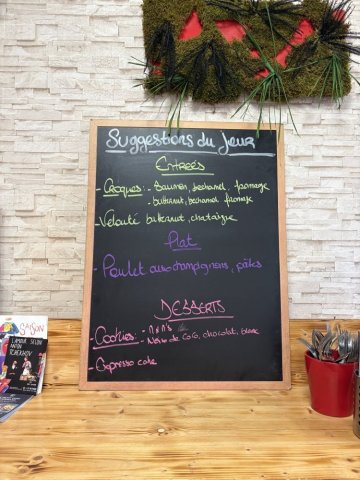 Suggestions du Jour
Entrées
- Croques: - Saumon, bechamel, fromage
- butternut, bechamel, fromage
- Velouté butternut, chataigne
Plat
- Poulet aux champignons, pâtes
DESSERTS
- Cookies: - M&M's
- Noix de Coco, chocolat blanc
- Expresso cake
SAISON
L'AMOUR SELON
ANTON
TCHEKHOV